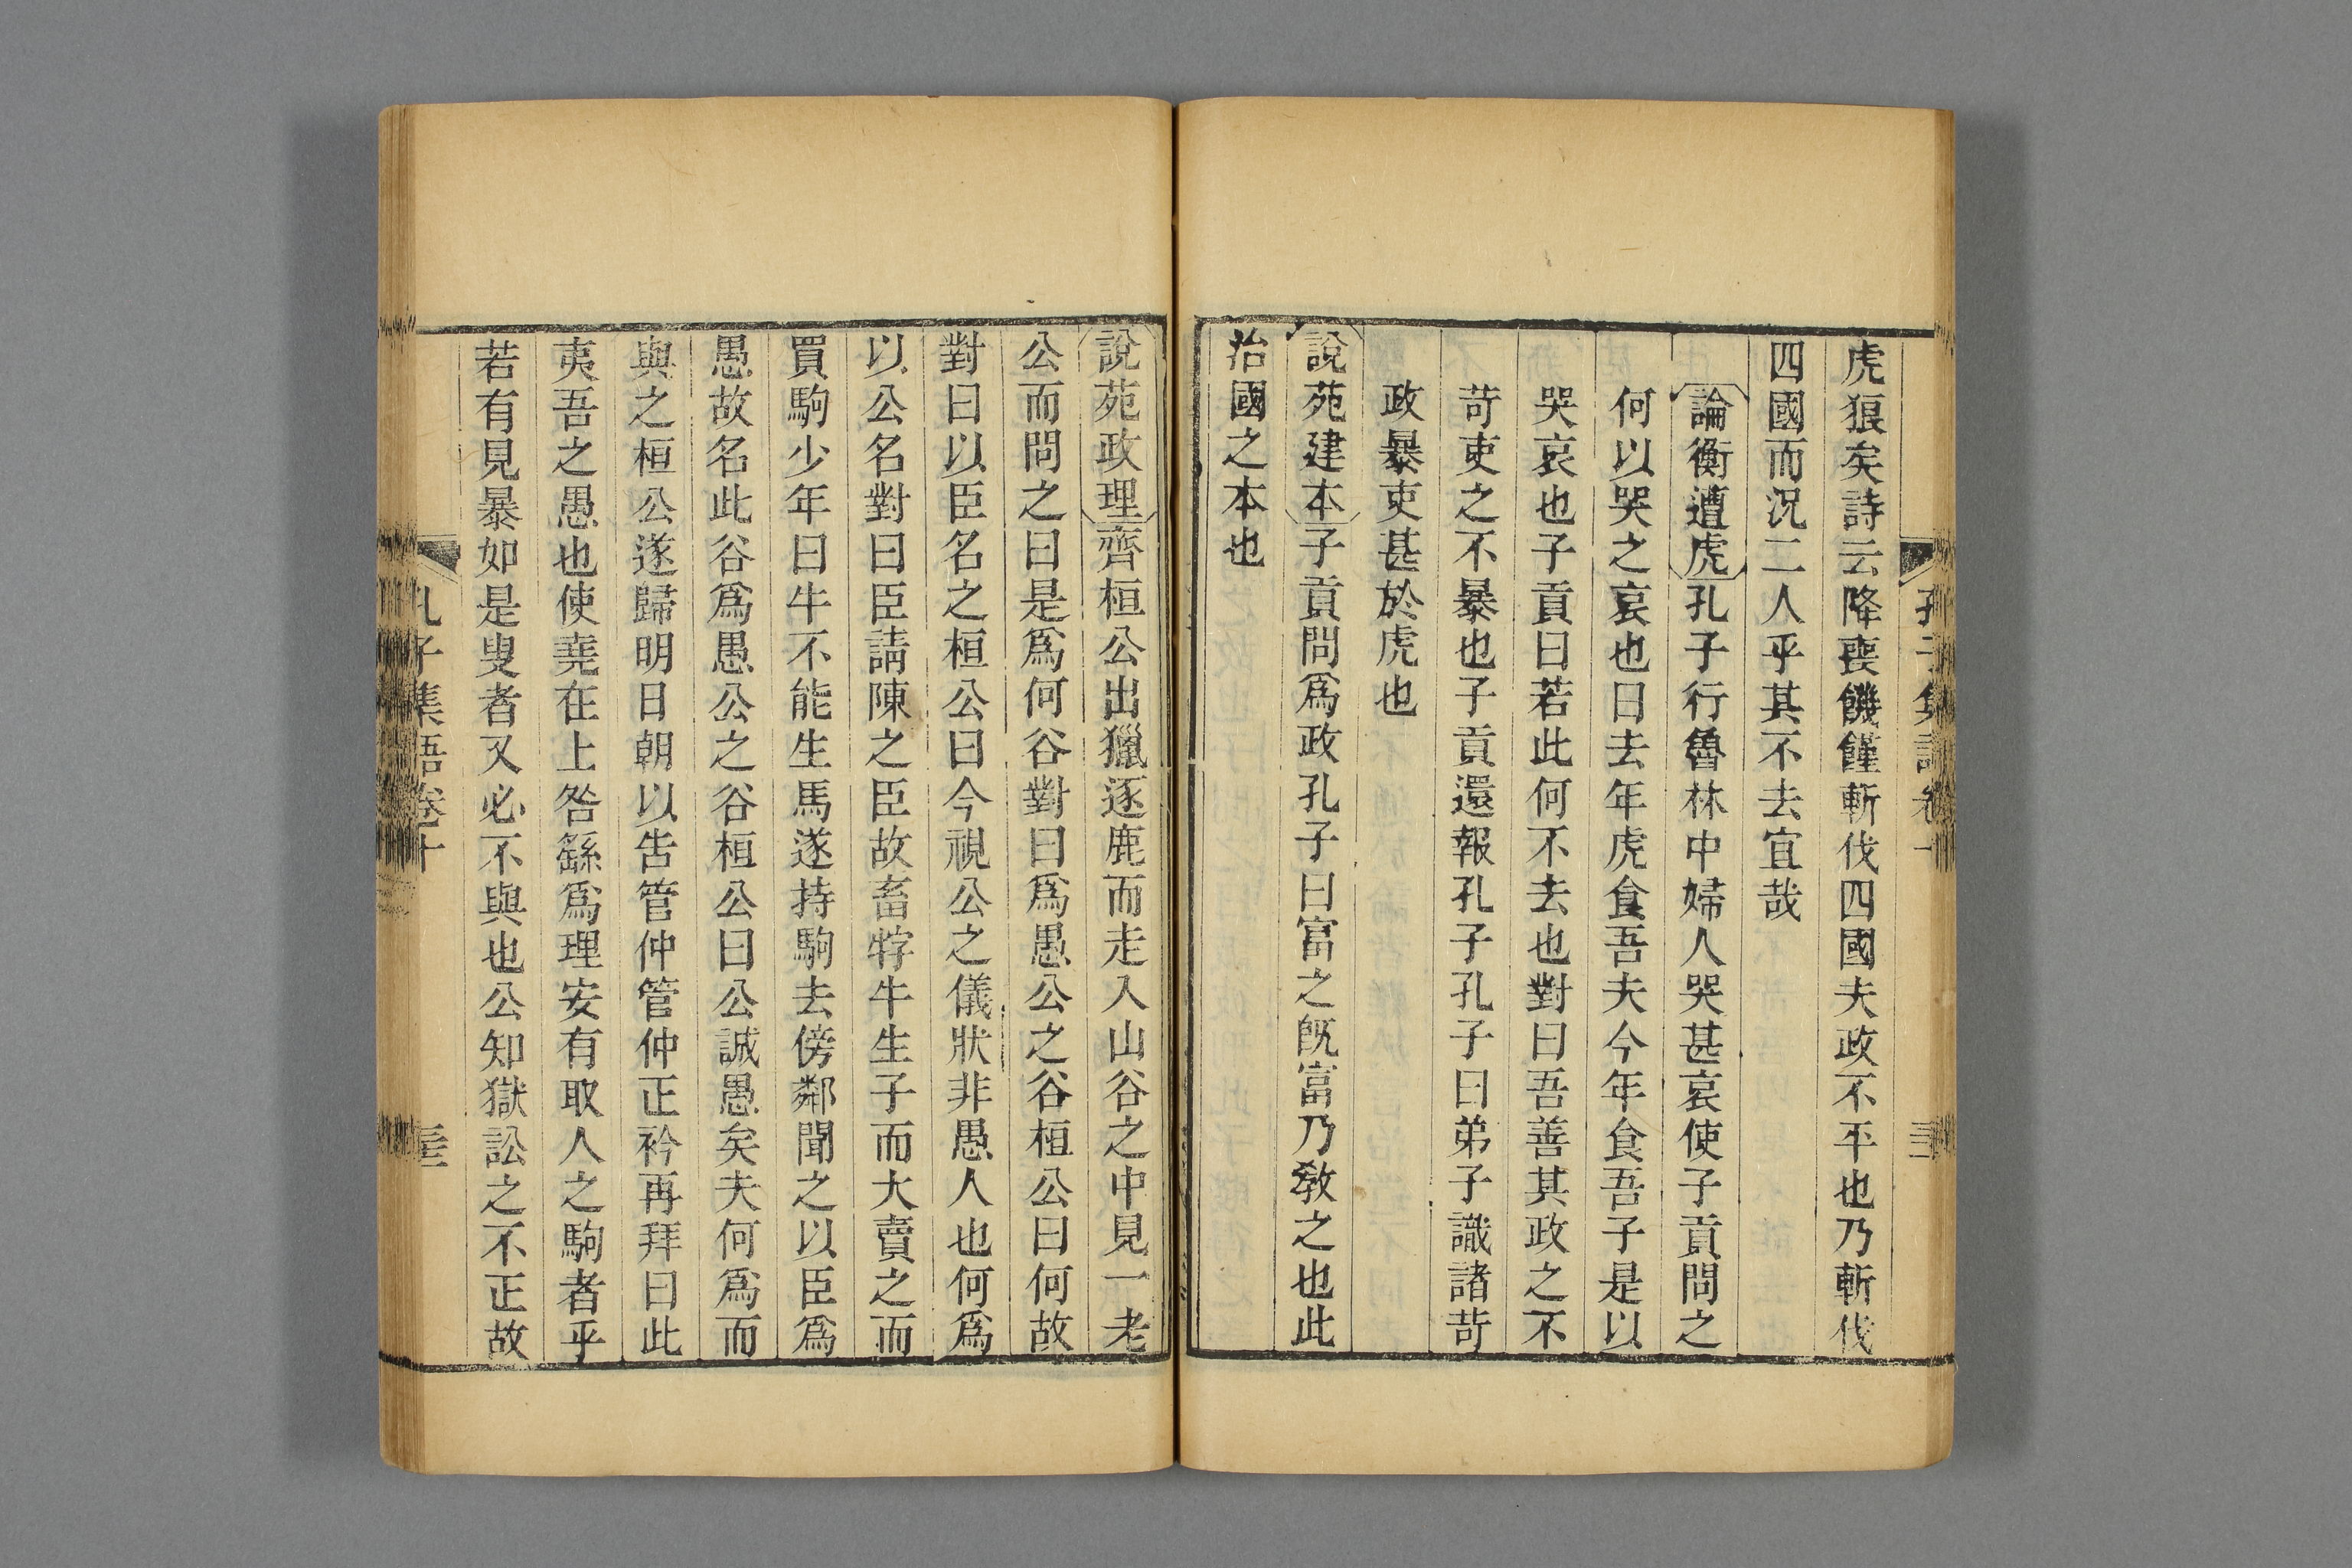 虎狼矣詩云降喪饑饉斬伐四國夫政不平也乃斬伐
四國而況二人乎其不去宜哉
論衡遭虎孔子行魯林中婦人哭甚哀使子貢問之
何以哭之哀也曰去年虎食吾夫今年食吾子是以
哭哀也子貢曰若此何不去也對曰吾善其政之不
苛吏之不暴也子貢還報孔子孔子曰弟子識諸苛
政暴吏甚於虎也
說苑建本子貢問爲政孔子曰富之旣富乃敎之也此
治國之本也
說苑政理齊桓公出獵逐鹿而走入山谷之中見一老
公而問之曰是爲何谷對曰爲愚公之谷桓公曰何故
對曰以臣名之桓公曰今視公之儀狀非愚人也何爲
以公名對曰臣請陳之臣故畜牸牛生子而大賣之而
買駒少年曰牛不能生馬遂持駒去傍鄰聞之以臣爲
愚故名此谷爲愚公之谷桓公曰公誠愚矣夫何爲而
與之桓公遂歸明日朝以告管仲管仲正衿再拜曰此
夷吾之愚也使堯在上咎繇爲理安有取人之駒者乎
若有見暴如是叟者又必不與也公知獄訟之不正故
孔子集語卷十